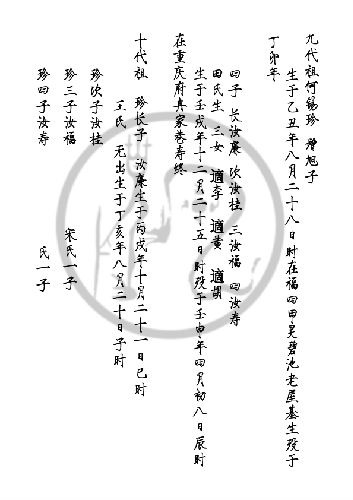 九代祖何锡珍 曾旭子
生于乙丑年八月二十八日时在福四田吴碧池老屋基生殁于
丁卯年
四子 长汝廉 次汝桂 三汝福 四汝寿
田氏生 三女 適李 適黄 適
生于壬戌年十二月二十五日时殁于壬申年四月初八日辰时
在重庆府真家巷寿终
十代祖 珍长子 汝廉生于丙戌年十月二十一日巳时
王氏 无出生于丁亥年八月二十日子时
珍次子汝桂
珍三子汝福 宋氏一子
珍四子汝寿 氏一子